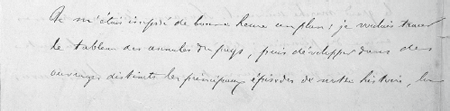 Je m'étais imposé de bonne heure un plan : je voulais tracer
le tableau des annales du pays, puis développer dans des
ouvrages distincts les principaux épisodes de notre histoire, les